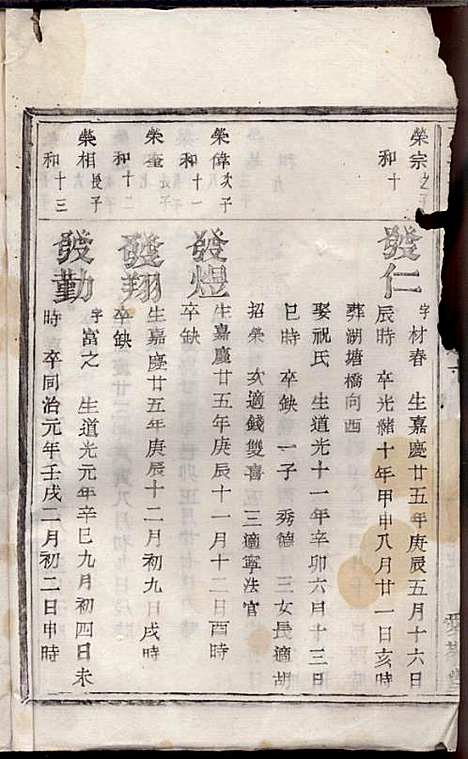 榮宗之子
和十
發仁
字材春 生嘉慶廿五年庚辰五月十六日
辰時 卒光緒十年甲申八月廿一日亥時
葬湖塘橋向酉
娶祝氏 生道光十一年辛卯六月十三日
巳時 卒缺 一子 秀德 三女長適胡
招榮 次適錢雙喜 三適寧法官
榮偉次子
和十一
發煜
生嘉慶廿五年庚辰十一月十二日酉時
卒缺
榮奎次子
和十二
發翔
生嘉慶廿五年庚辰十二月初九日戌時
卒缺
榮相長子
和十三
發勤
字富之 生道光元年辛巳九月初四日未
時 卒同治元年壬戌二月初二日申時